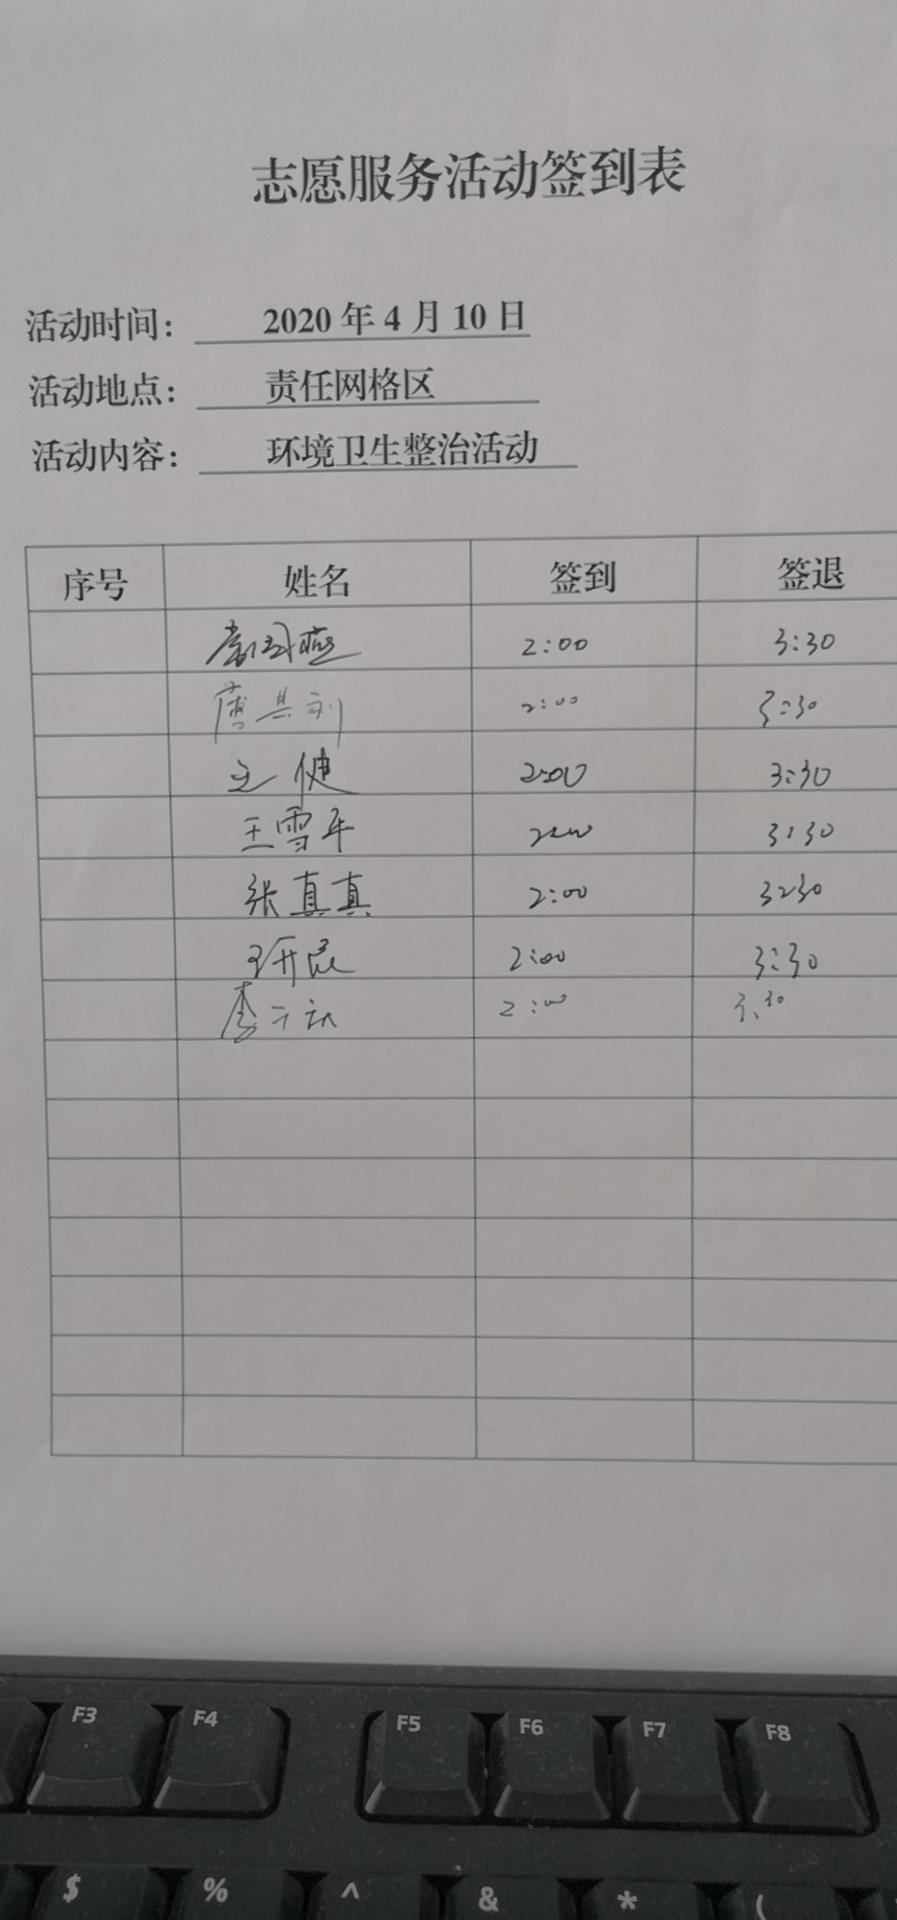 志愿服务活动签到表
活动时间： 2020 年 4 月 10 日
活动地点： 责任网格区
活动内容： 环境卫生整治活动
序号 姓名 签到 签退
2:00 3:30
2:00 3:30
王健 2:00 3:30
王雪平 2:00 3:30
张真真 2:00 3:30
2:00 3:30
李 2:00 3:30
F3 F4 F5 F6 F7 F8
$ % ^ & * (